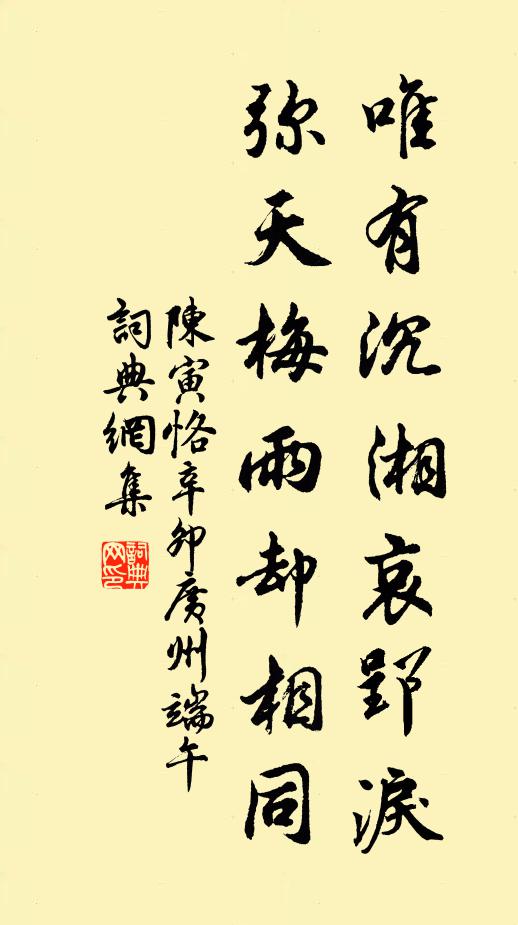 唯有沉湘哀郢淚
弥天梅雨却相同
陳寅恪辛卯廣州端午
詞典網集
詞典网印